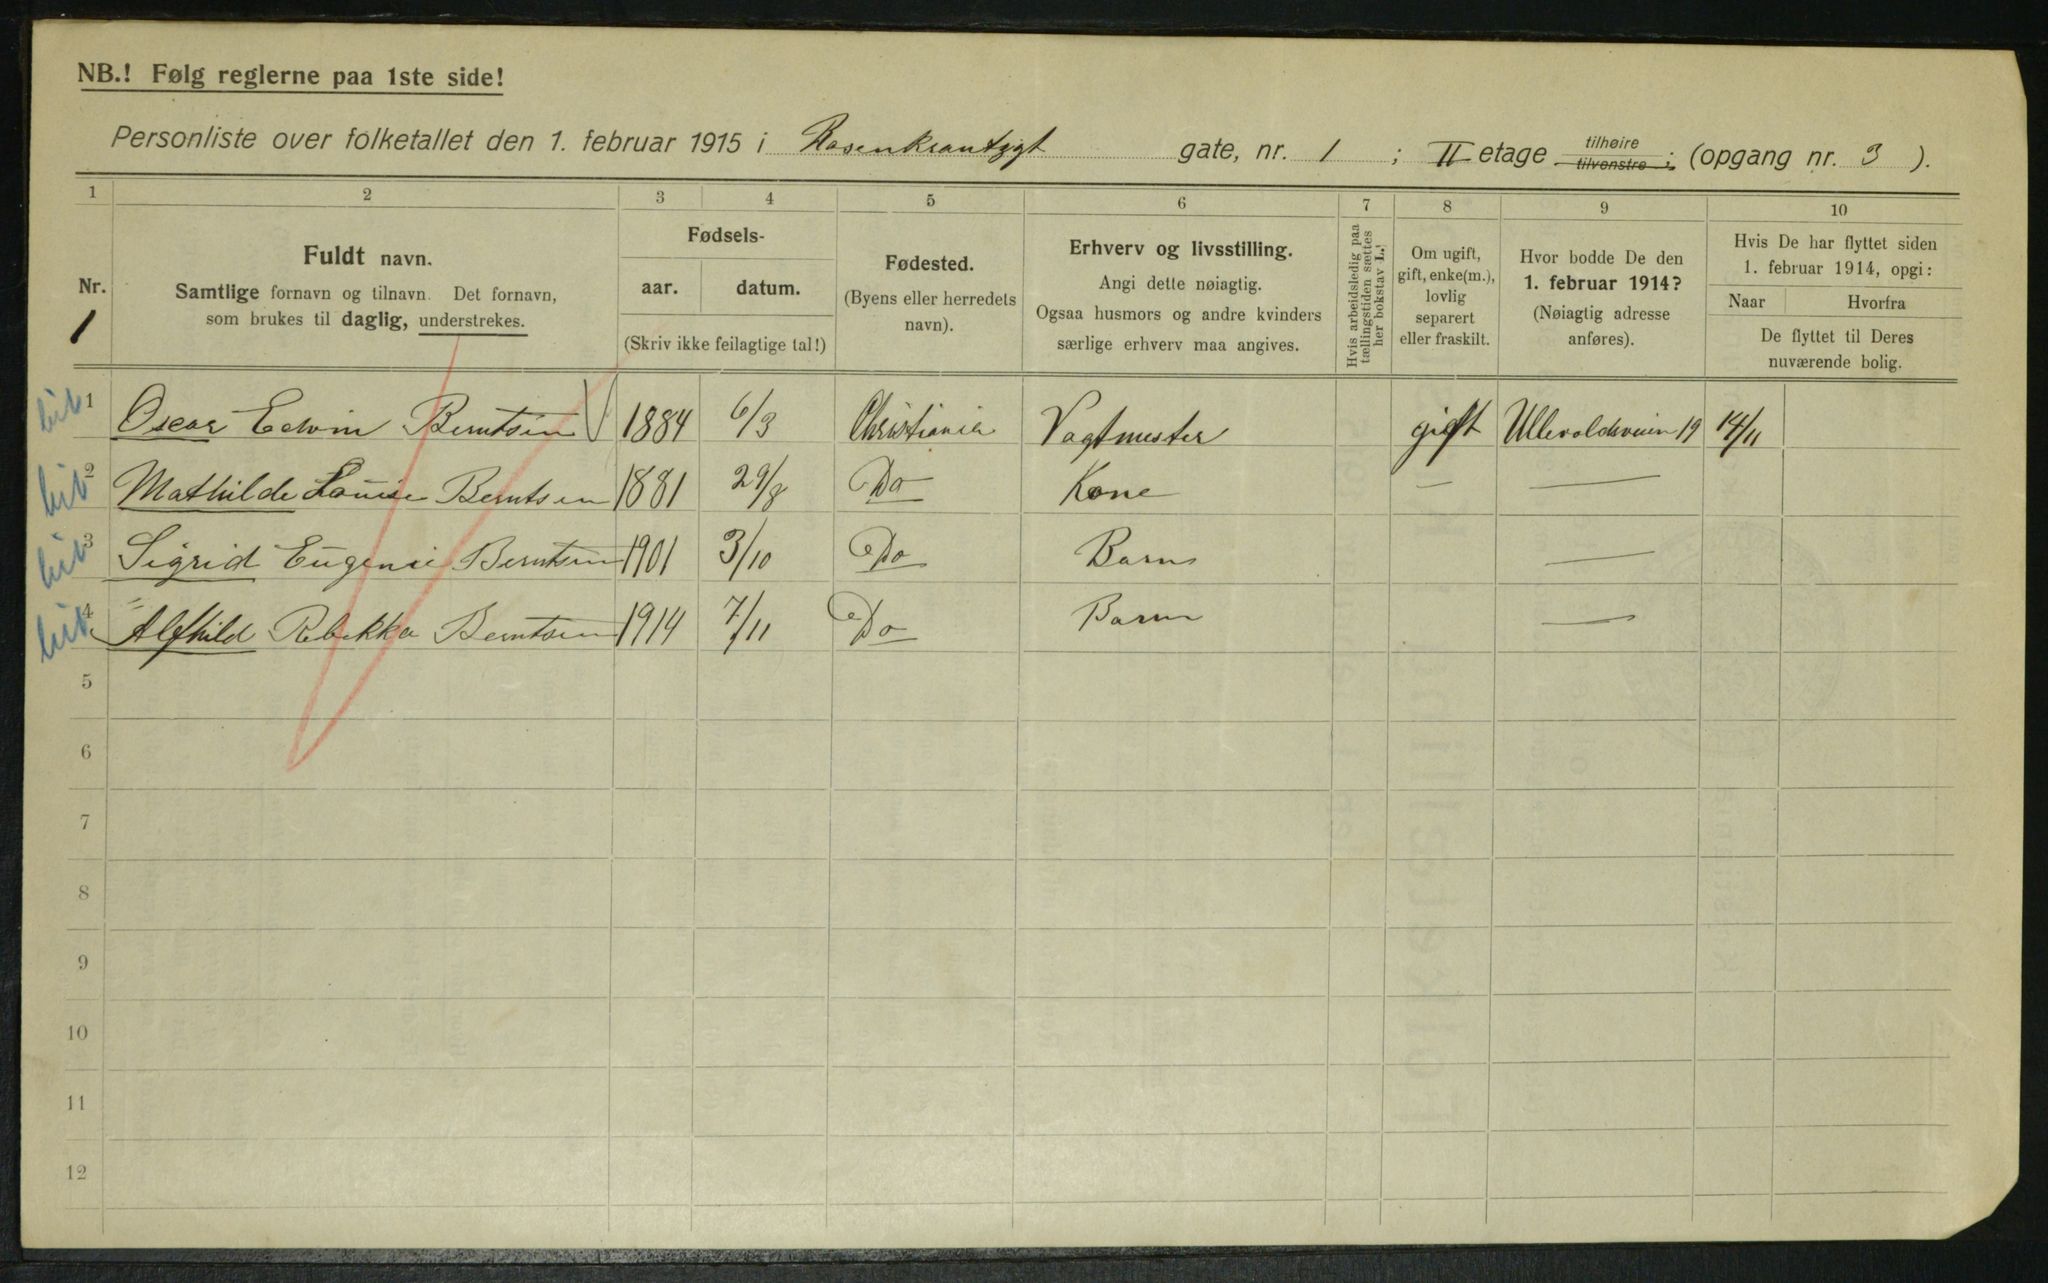 NB.! Følg reglerne paa 1ste side!
Personliste over folketallet den 1. februar 1915 i Rosenkrantzgt gate, nr. 1 ; II etage tilhøire tilvenstre; (opgang nr. 3 ).
1 2 3 4 5 6 7 8 9 10
Nr.
1
Fuldt navn.
Samtlige fornavn og tilnavn. Det fornavn,
som brukes til daglig, understrekes.
Fødsels-
aar. datum.
(Skriv ikke feilagtige tal!)
Fødested.
(Byens eller herredets
navn).
Erhverv og livsstilling.
Angi dette nøiagtig.
Ogsaa husmors og andre kvinders
særlige erhverv maa angives.
Hvis arbeidsledig paa
tællingstiden sættes
her bokstav L.!
Om ugift,
gift, enke(m.),
lovlig
separert
eller fraskilt.
Hvor bodde De den
1. februar 1914?
(Nøiagtig adresse
anføres).
Hvis De har flyttet siden
1. februar 1914, opgi:
Naar Hvorfra
De flyttet til Deres
nuværende bolig.
1 Oscar Edvin Berntsen 1884 6/3 Christiania Vagtmester gift Ullevoldsveien 19 14/11
2 Mathilde Louise Berntsen 1881 29/8 Do Kone — —
3 Sigrid Eugenie Berntsen 1901 3/10 Do Barn —
4 Alfhild Rebekka Berntsen 1914 7/11 Do Barn —
5
6
7
8
9
10
11
12